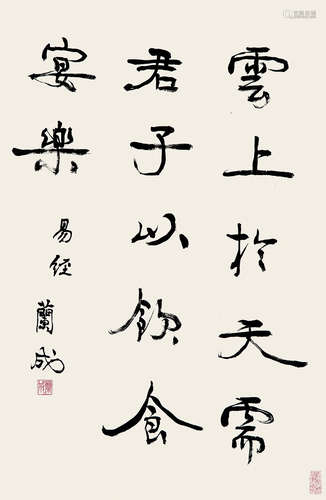 雲上於天需
君子以飲食
宴樂
易經
蘭成